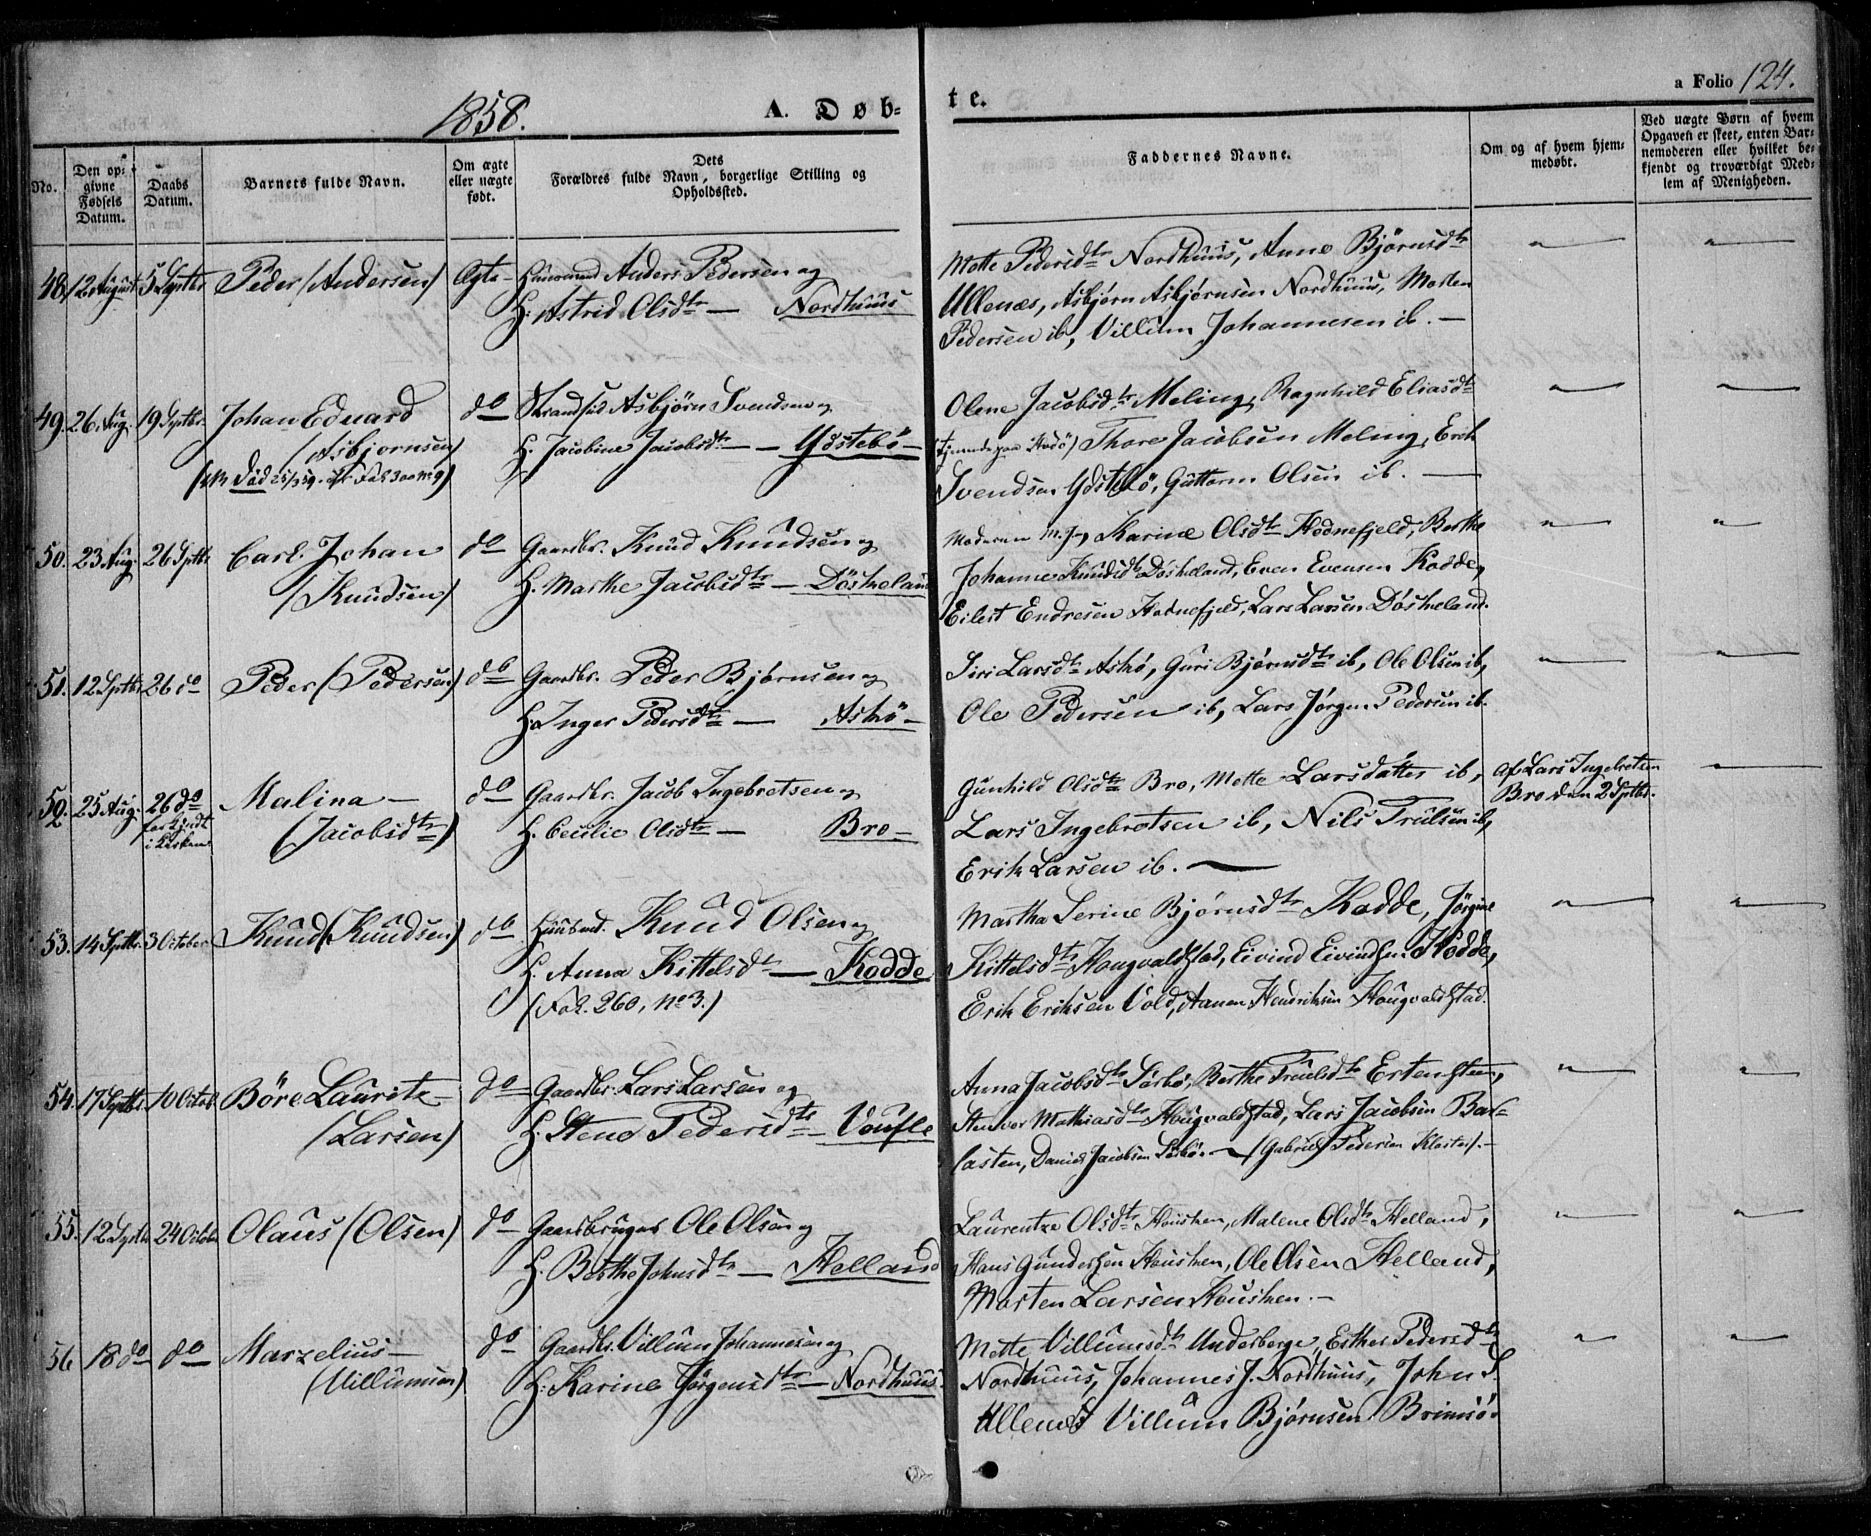 1858. A. Døb- te. a Folio 124.
No. Den op- givne Fødsels Datum. Daabs Datum. Barnets fulde Navn. Om ægte eller uægte født. Dets Forældres fulde Navn, borgerlige Stilling og Opholdssted. Faddernes Navne. Om og af hvem hjem- medøbt. Ved uægte Børn af hvem Opgaven er skeet, enten Bar- nemoderen eller hvilket be- kjendt og troværdigt Med- lem af Menigheden.
48. 12 August 5 Septbr. Peder (Andersen) Ægte Huusmand Anders Pedersen og
H. Astrid Olsdtr — Nordhuus
Mette Pedersdtr Nordhuus, Anne Bjørnsdtr
Ullenæs, Asbjørn Asbjørnsen Nordhuus, Morten
Pedersen ib, Villum Johannesen ib. —
49. 26. Aug. 19 Septbr. Johan Eduard do Strandsid Asbjørn Svendsen og
(Asbjørnsen) H. Jacobine Jacobsdtr — Ydstebö —
(NB Död 25/3 59. Fol 300 No 9)
Olene Jacobsdtr Meling, Ragnhild Eliasdtr
(tjenende paa Askö) Thore Jacobsen Meling, Erik
Svendsen Ydstebö, Guttorm Olsen ib. —
50. 23 Aug. 26 Septbr Carl Johan do Gaardbr. Knud Knudsen og
(Knudsen) H. Marthe Jacobsdtr — Döskeland
Moderen Karine Olsdtr Hodnefjeld, Berthe
Johanne Knudsdtr Döskeland, Even Evensen Kodde,
Eilert Endresen Hodnefjeld, Lars Larsen Döskeland.
51. 12 Septbr 26 do Peder (Pedersen) do Gaardbr. Peder Bjørnsen og
H. Inger Pedersdtr — Askö —
Siri Larsdtr Askö, Guri Bjørnsdtr ib, Ole Olsen ib,
Ole Pedersen ib, Lars Jørgen Pedersen ib.
52. 25 Aug. 26 do Malina — do Gaardbr. Jacob Ingebretsen og
i Kirken (Jacobsdtr) H. Cecilie Olsdtr — Bro —
Gunhild Olsdtr Bro, Mette Larsdatter ib, af Lars Ingebretsen
Bro den 2 Septbr.
Lars Ingebretsen ib, Nils Trulsen ib,
Erik Larsen ib. —
53. 14 Septbr. 3 October Knud (Knudsen) do Huusmd. Knud Olsen og
H. Anna Kittelsdtr — Kodde
(Fol. 260, No 3.)
Martha Serine Bjørnsdtr Kodde, Jörgine
Kittelsdtr Hougvaldstad, Eivind Eivindsen Kodde,
Erik Eriksen Vold, Aanen Hendriksen Hougvaldstad.
54. 17 Septbr. 10 Octobr Böre Lauritz — do Gaardbr. Lars Larsen og
(Larsen) H. Stene Pedersdtr — Voufle
Anna Jacobsdtr Sørbø, Berthe Trulsdtr Ertensteen,
Stenvor Mathiasdtr Hougvaldstad, Lars Jacobsen Bar-
kasten, Daniel Jacobsen Sørbø. — (Gabriel Pedersen Kloster). —
55. 12 Septbr 24 Octobr Olaus (Olsen) do Gaardbruger Ole Olsen og
H. Berthe Johnsdtr — Helland
Laurentze Olsdtr Housken, Malene Olsdtr Helland,
Hans Gundersen Housken, Ole Olsen Helland,
Morten Larsen Housken. —
56 18 do do Marzelius — do Gaardbr. Villum Johannesen og
(Villumsen) H. Karine Jørgensdtr — Nordhuus.
Mette Villumsdtr Underberge, Esther Pedersdtr
Nordhuus, Johannes J. Nordhuus, John S.
Ullenæs Villum Bjørnsen Brimsö.